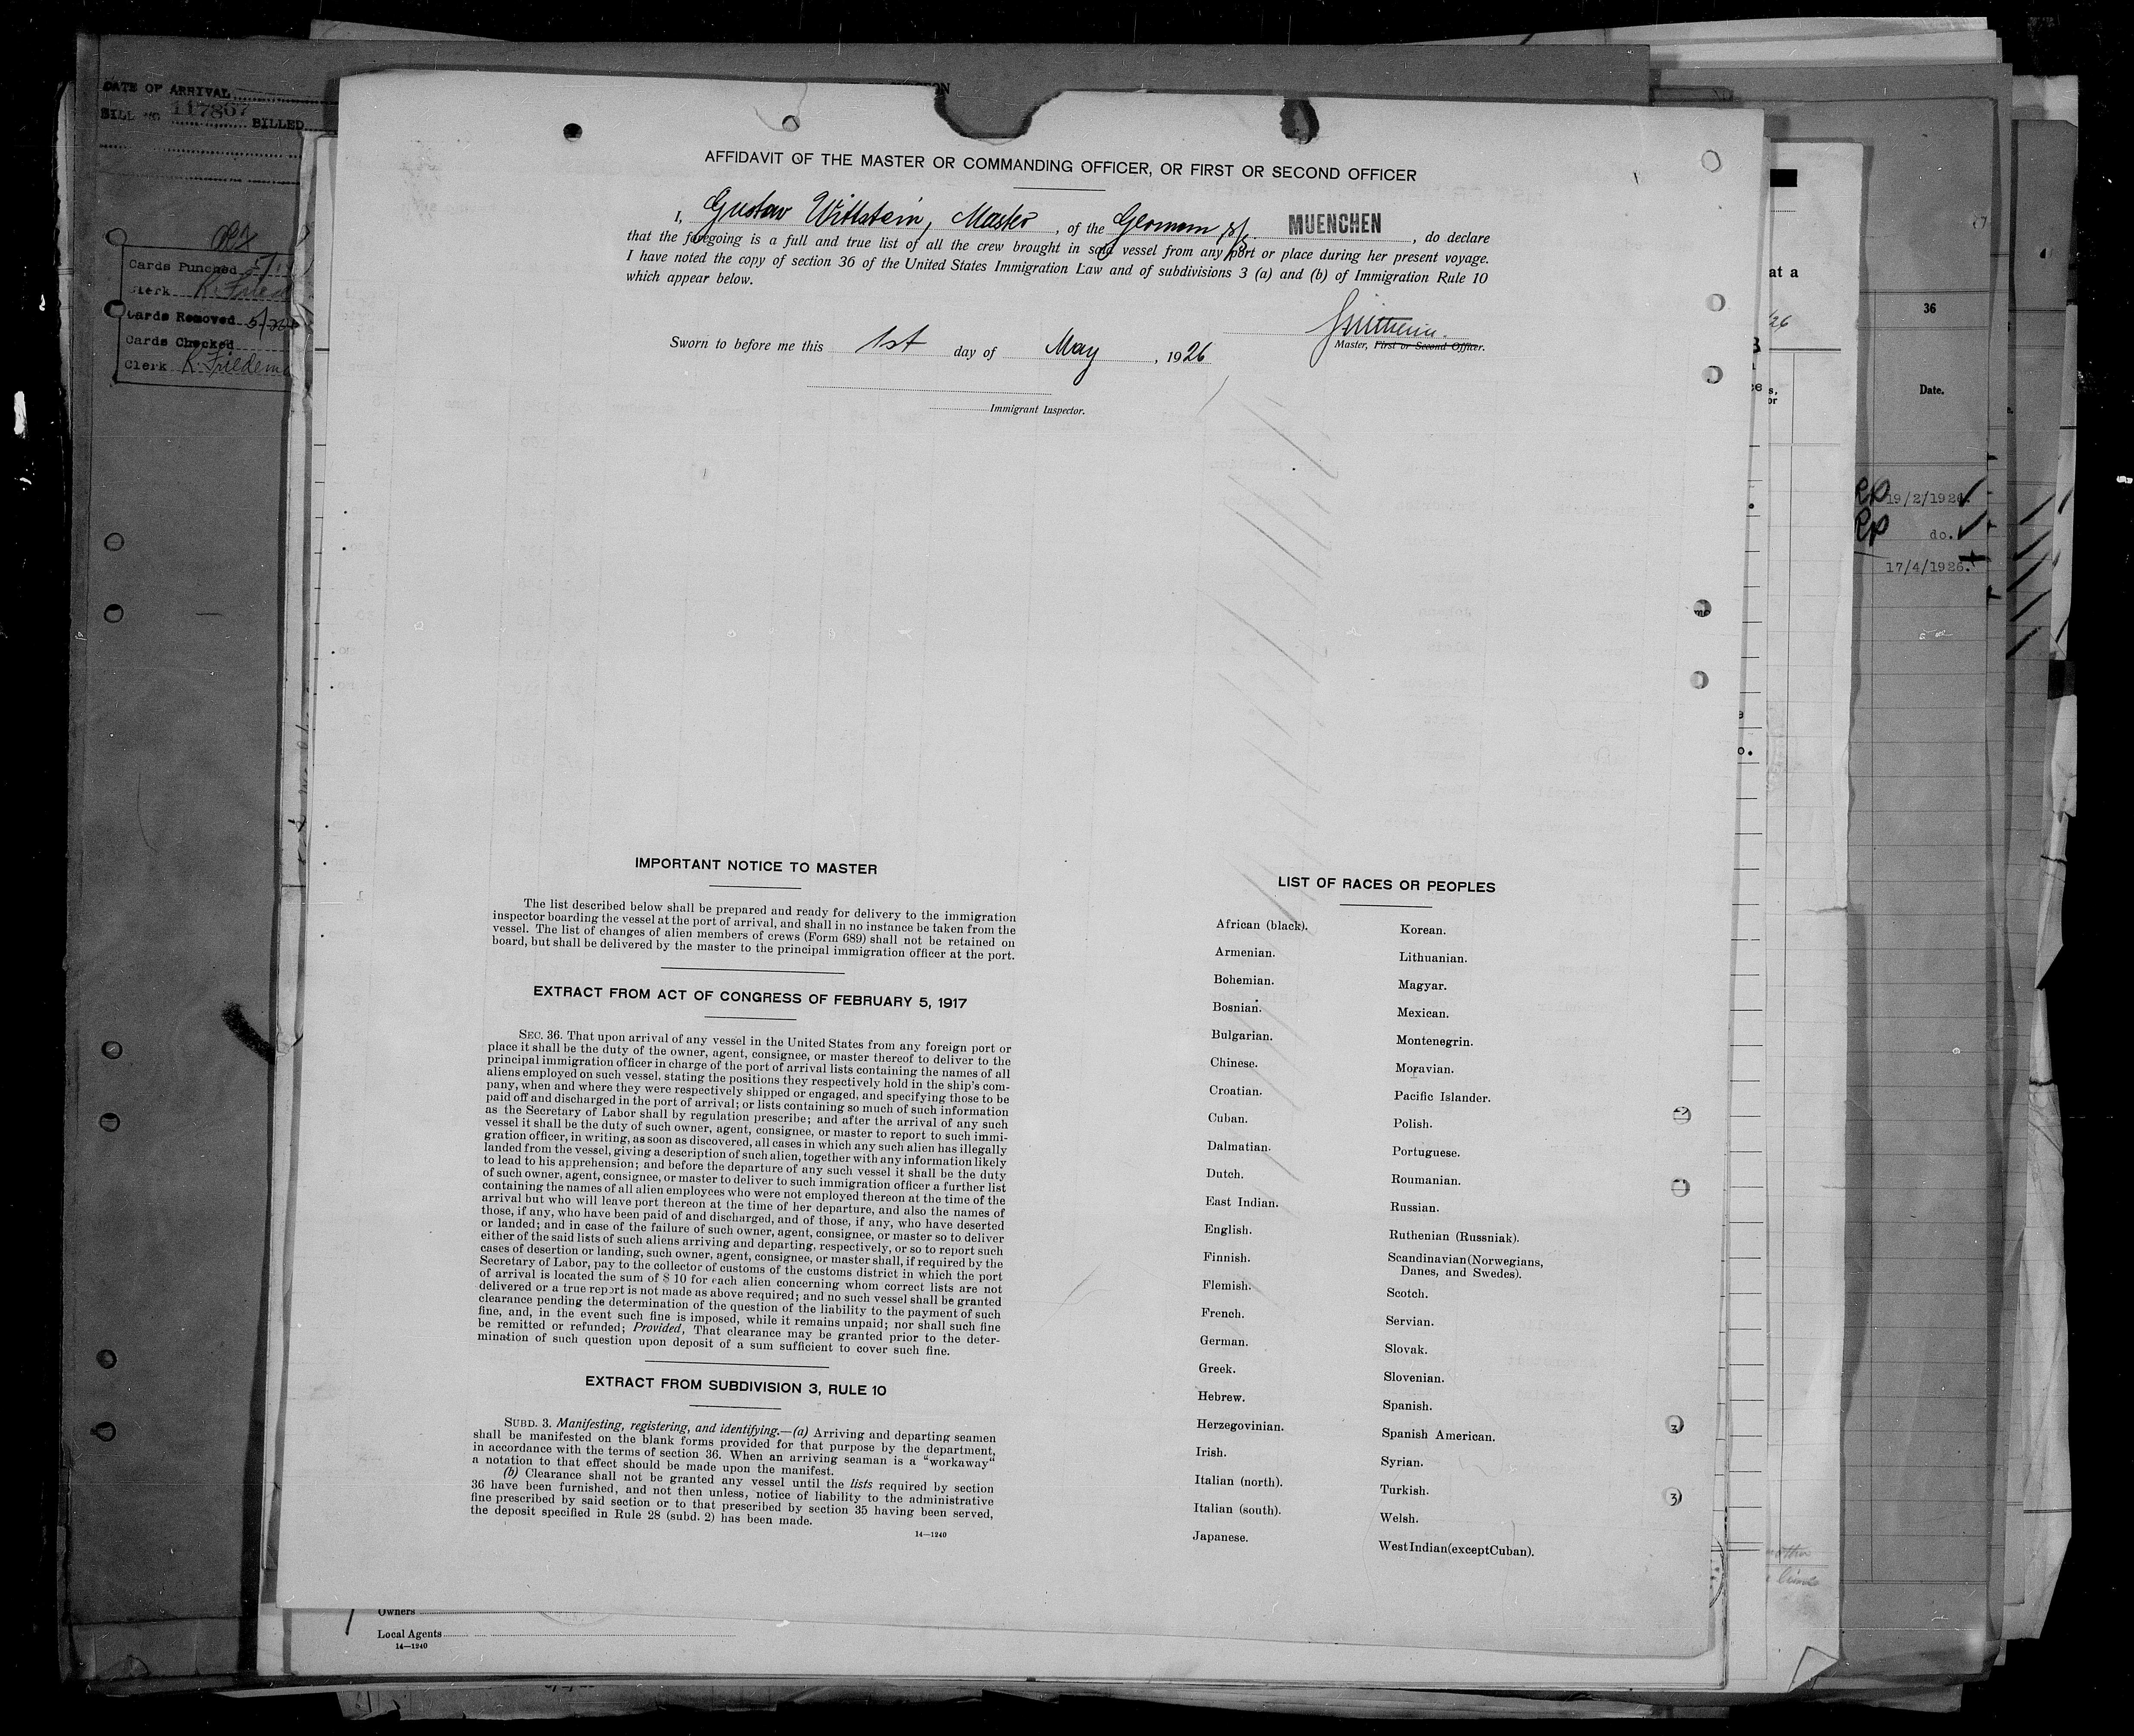 DATE OF ARRIVAL
BILL NO 117867 BILLED
Cards Punched 5/1
Clerk R. Fried
Cards Removed 5/
Cards Checked
Clerk R. Friedem
AFFIDAVIT OF THE MASTER OR COMMANDING OFFICER, OR FIRST OR SECOND OFFICER
I, Gustav Wittstein, Master, of the German MUENCHEN, do declare
that the foregoing is a full and true list of all the crew brought in said vessel from any port or place during her present voyage.
I have noted the copy of section 36 of the United States Immigration Law and of subdivisions 3 (a) and (b) of Immigration Rule 10
which appear below.
Master, First or Second Officer.
Sworn to before me this 1st day of May, 1926
Immigrant Inspector.
IMPORTANT NOTICE TO MASTER
The list described below shall be prepared and ready for delivery to the immigration
inspector boarding the vessel at the port of arrival, and shall in no instance be taken from the
vessel. The list of changes of alien members of crews (Form 689) shall not be retained on
board, but shall be delivered by the master to the principal immigration officer at the port.
EXTRACT FROM ACT OF CONGRESS OF FEBRUARY 5, 1917
SEC. 36. That upon arrival of any vessel in the United States from any foreign port or
place it shall be the duty of the owner, agent, consignee, or master thereof to deliver to the
principal immigration officer in charge of the port of arrival lists containing the names of all
aliens employed on such vessel, stating the positions they respectively hold in the ship's com-
pany, when and where they were respectively shipped or engaged, and specifying those to be
paid off and discharged in the port of arrival; or lists containing so much of such information
as the Secretary of Labor shall by regulation prescribe; and after the arrival of any such
vessel it shall be the duty of such owner, agent, consignee, or master to report to such immi-
gration officer, in writing, as soon as discovered, all cases in which any such alien has illegally
landed from the vessel, giving a description of such alien, together with any information likely
to lead to his apprehension; and before the departure of any such vessel it shall be the duty
of such owner, agent, consignee, or master to deliver to such immigration officer a further list
containing the names of all alien employees who were not employed thereon at the time of the
arrival but who will leave port thereon at the time of her departure, and also the names of
those, if any, who have been paid of and discharged, and of those, if any, who have deserted
or landed; and in case of the failure of such owner, agent, consignee, or master so to deliver
either of the said lists of such aliens arriving and departing, respectively, or so to report such
cases of desertion or landing, such owner, agent, consignee, or master shall, if required by the
Secretary of Labor, pay to the collector of customs of the customs district in which the port
of arrival is located the sum of $ 10 for each alien concerning whom correct lists are not
delivered or a true report is not made as above required; and no such vessel shall be granted
clearance pending the determination of the question of the liability to the payment of such
fine, and, in the event such fine is imposed, while it remains unpaid; nor shall such fine
be remitted or refunded; Provided, That clearance may be granted prior to the deter-
mination of such question upon deposit of a sum sufficient to cover such fine.
EXTRACT FROM SUBDIVISION 3, RULE 10
SUBD. 3. Manifesting, registering, and identifying.—(a) Arriving and departing seamen
shall be manifested on the blank forms provided for that purpose by the department,
in accordance with the terms of section 36. When an arriving seaman is a "workaway"
a notation to that effect should be made upon the manifest.
(b) Clearance shall not be granted any vessel until the lists required by section
36 have been furnished, and not then unless, notice of liability to the administrative
fine prescribed by said section or to that prescribed by section 35 having been served,
the deposit specified in Rule 28 (subd. 2) has been made.
14—1240
LIST OF RACES OR PEOPLES
African (black).
Armenian.
Bohemian.
Bosnian.
Bulgarian.
Chinese.
Croatian.
Cuban.
Dalmatian.
Dutch.
East Indian.
English.
Finnish.
Flemish.
French.
German.
Greek.
Hebrew.
Herzegovinian.
Irish.
Italian (north).
Italian (south).
Japanese.
Korean.
Lithuanian.
Magyar.
Mexican.
Montenegrin.
Moravian.
Pacific Islander.
Polish.
Portuguese.
Roumanian.
Russian.
Ruthenian (Russniak).
Scandinavian (Norwegians,
Danes, and Swedes).
Scotch.
Servian.
Slovak.
Slovenian.
Spanish.
Spanish American.
Syrian.
Turkish.
Welsh.
West Indian (except Cuban).
Owners
Local Agents
14—1240
at a
36
Date.
19/2/1926.
do.
17/4/1926.